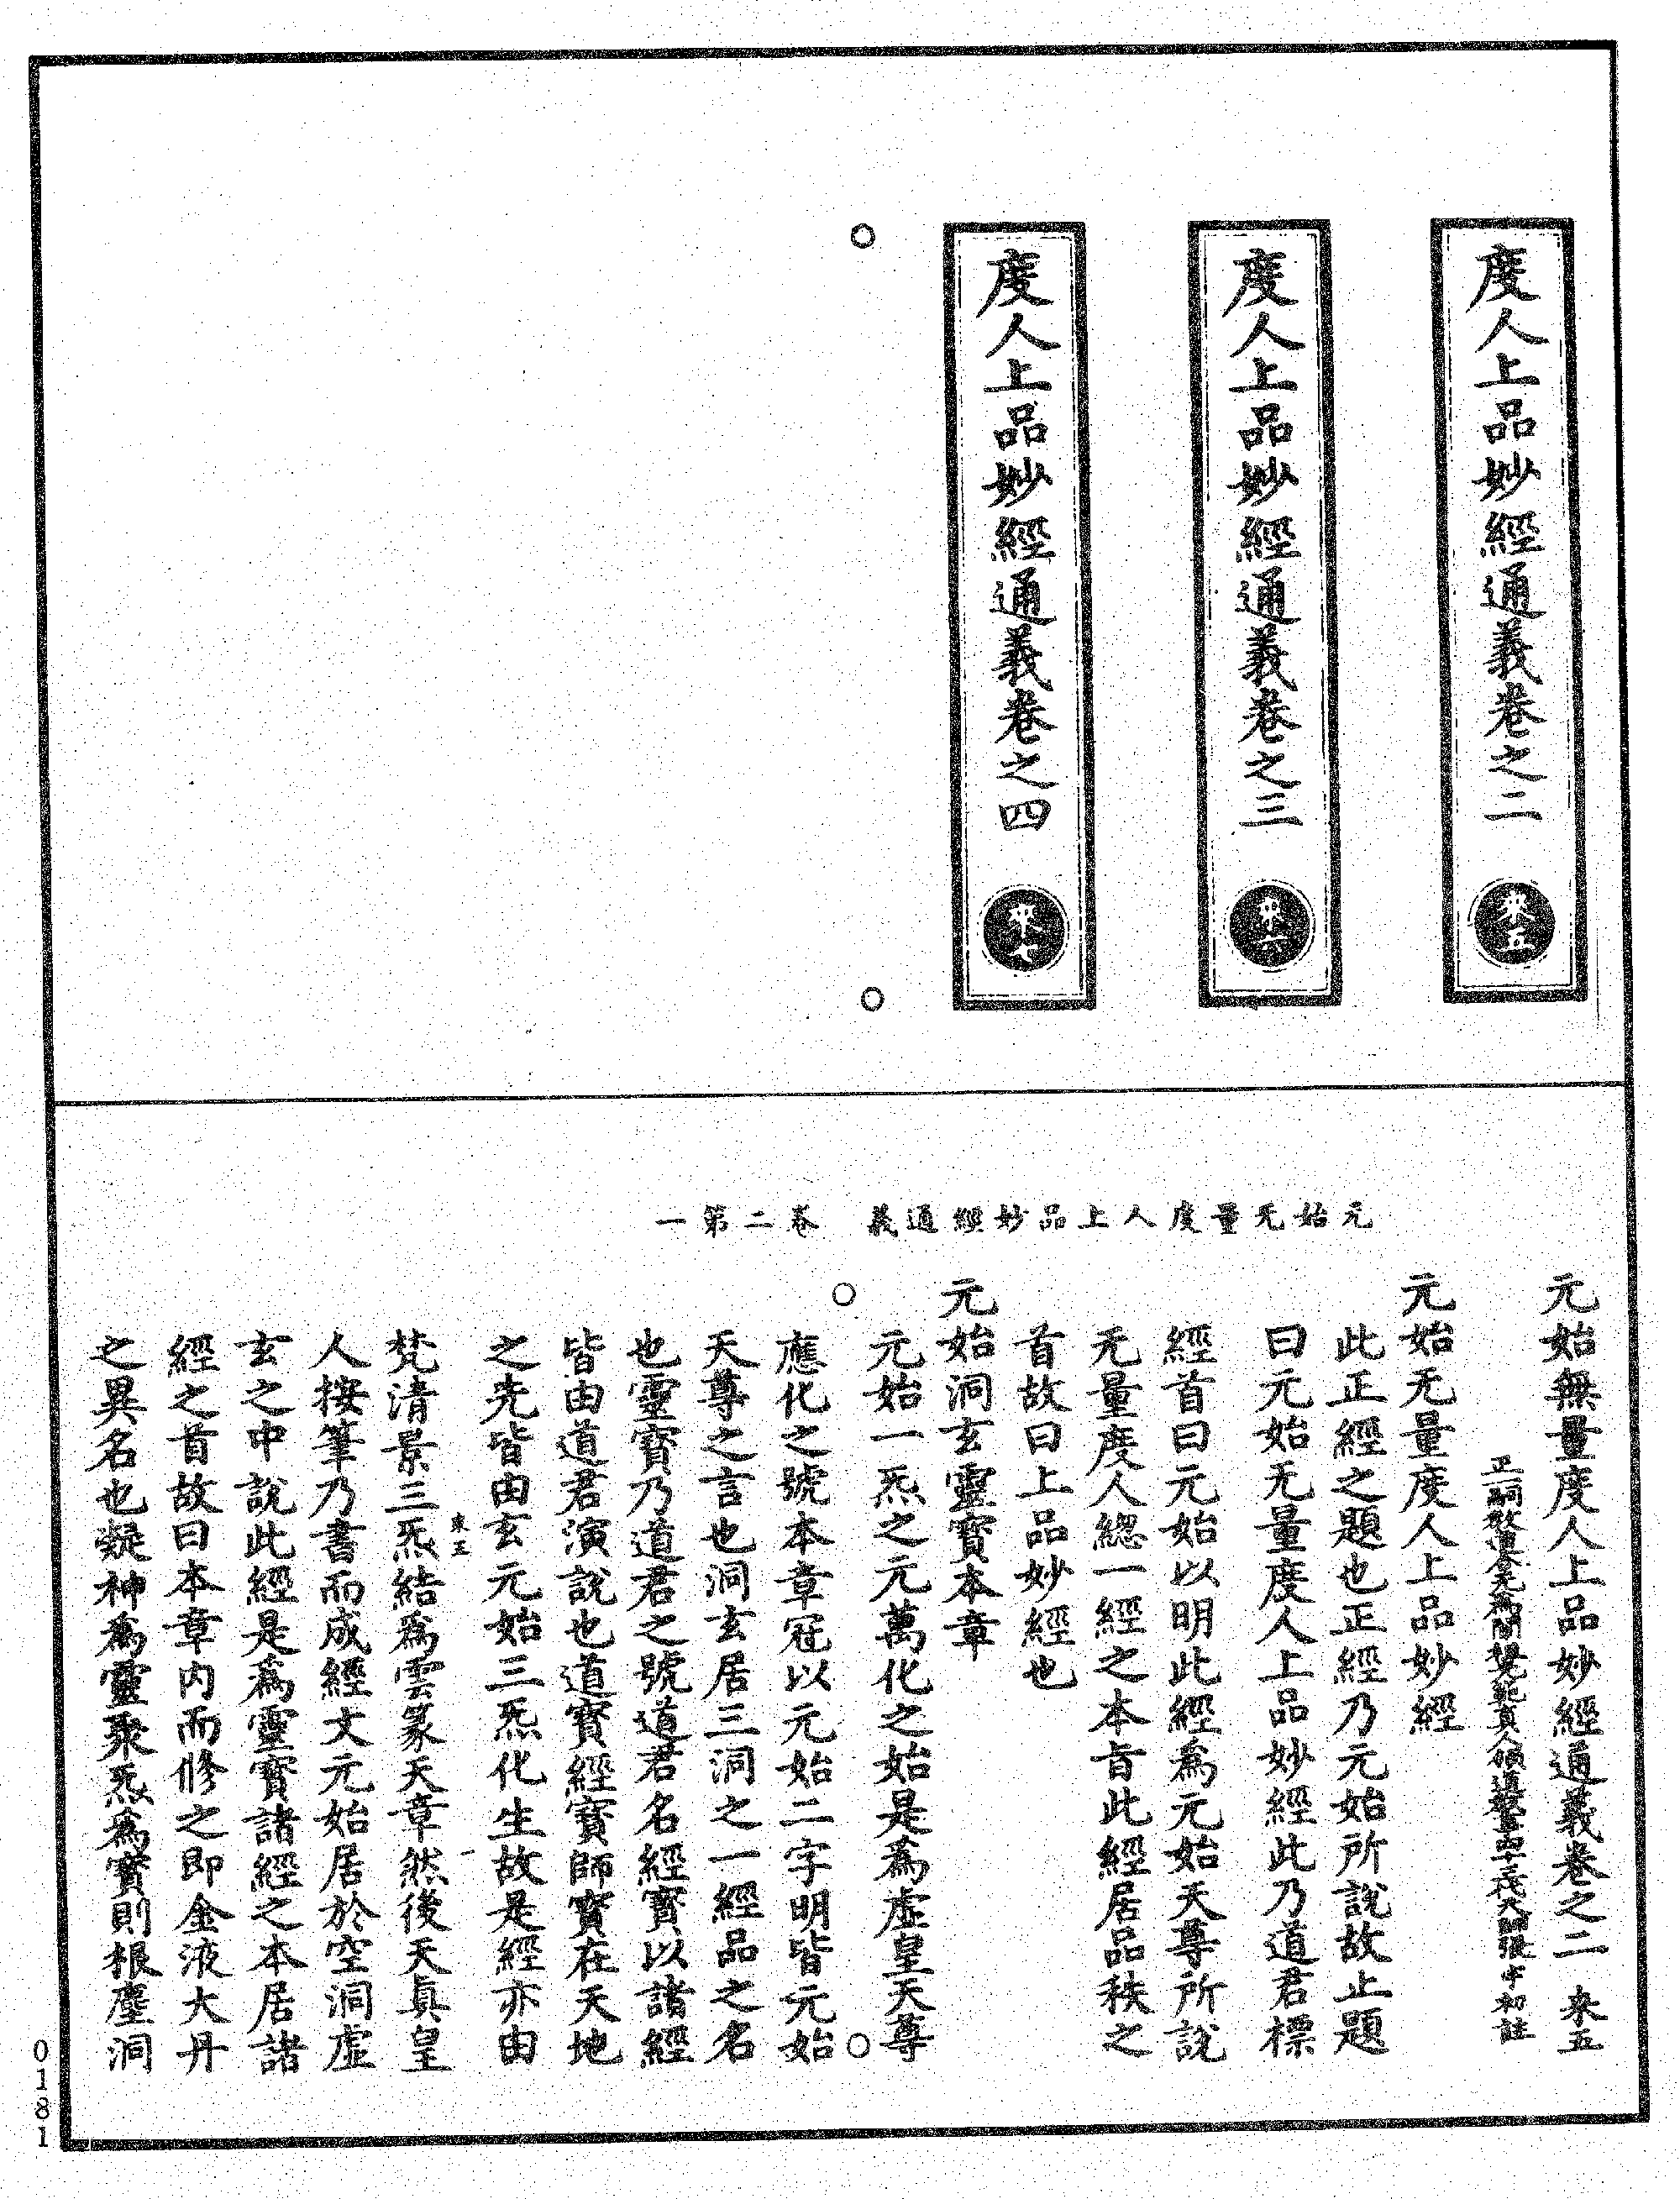 度人上品妙經通義卷之二 來五
度人上品妙經通義卷之三 來六
度人上品妙經通義卷之四 來七
元始无量度人上品妙經通義 卷二第一
元始無量度人上品妙經通義卷之二 來五
正嗣教道合无為闡祖光範真人領道教事四十三代天師張宇初註
元始无量度人上品妙經
此正經之題也正經乃元始所說故止題
曰元始无量度人上品妙經此乃道君標
經首曰元始以明此經為元始天尊所說
无量度人緫一經之本旨此經居品秩之
首故曰上品妙經也
元始洞玄靈寳本章
元始一炁之元萬化之始是為虛皇天尊
應化之號本章冠以元始二字明皆元始
天尊之言也洞玄居三洞之一經品之名
也靈寳乃道君之號道君名經寳以諸經
皆由道君演說也道寳經寳師寳在天地
之先皆由玄元始三炁化生故是經亦由
梵清景三炁結為雲篆天章然後天真皇
來五 一
人按筆乃書而成經文元始居於空洞虛
玄之中說此經是為靈寳諸經之本居諸
經之首故曰本章内而修之即金液大丹
之異名也凝神為靈聚炁為寳則根塵洞
0181